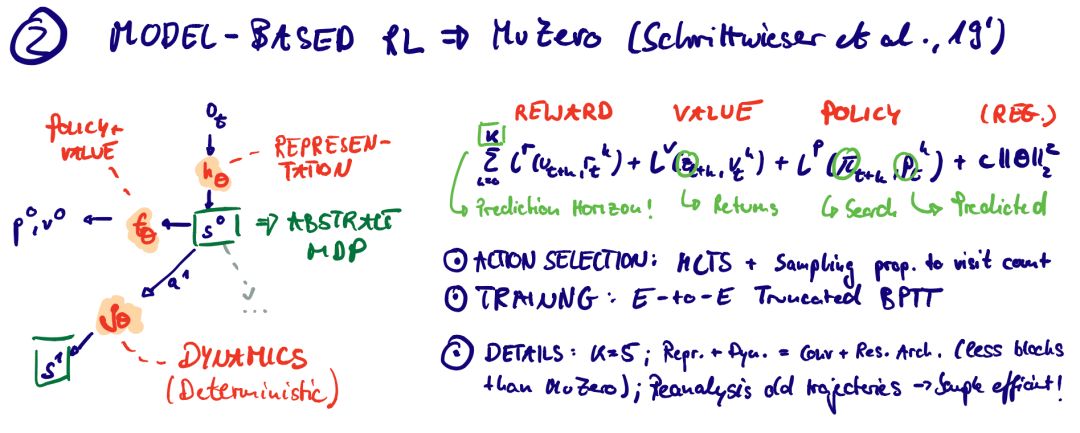 2 MODEL-BASED RL ⇒ MuZero (Schrittwieser et al., 19')
o_t
POLICY+
VALUE
h_θ
REPRESEN-
TATION
p^0, v^0 ← f_θ ← s^0 ⇒ ABSTRACT
MDP
a^1
...
g_θ
s^1
DYNAMICS
(Deterministic)
REWARD VALUE POLICY (REG.)
K
Σ l^r(u_{t+k}, r_t^k) + l^v(z_{t+k}, v_t^k) + l^p(π_{t+k}, p_t^k) + c||θ||_2^2
k=0
↳ Prediction Horizon! ↳ Returns ↳ Search ↳ Predicted
⊙ ACTION SELECTION: MCTS + Sampling prop. to visit count
⊙ TRAINNG: E-to-E Truncated BPTT
⊙ DETAILS: K=5; Repr. + Dyn. = Conv + Res. Arch. (less blocks
than MuZero); Reanalysis old trajectories → Sample efficient!